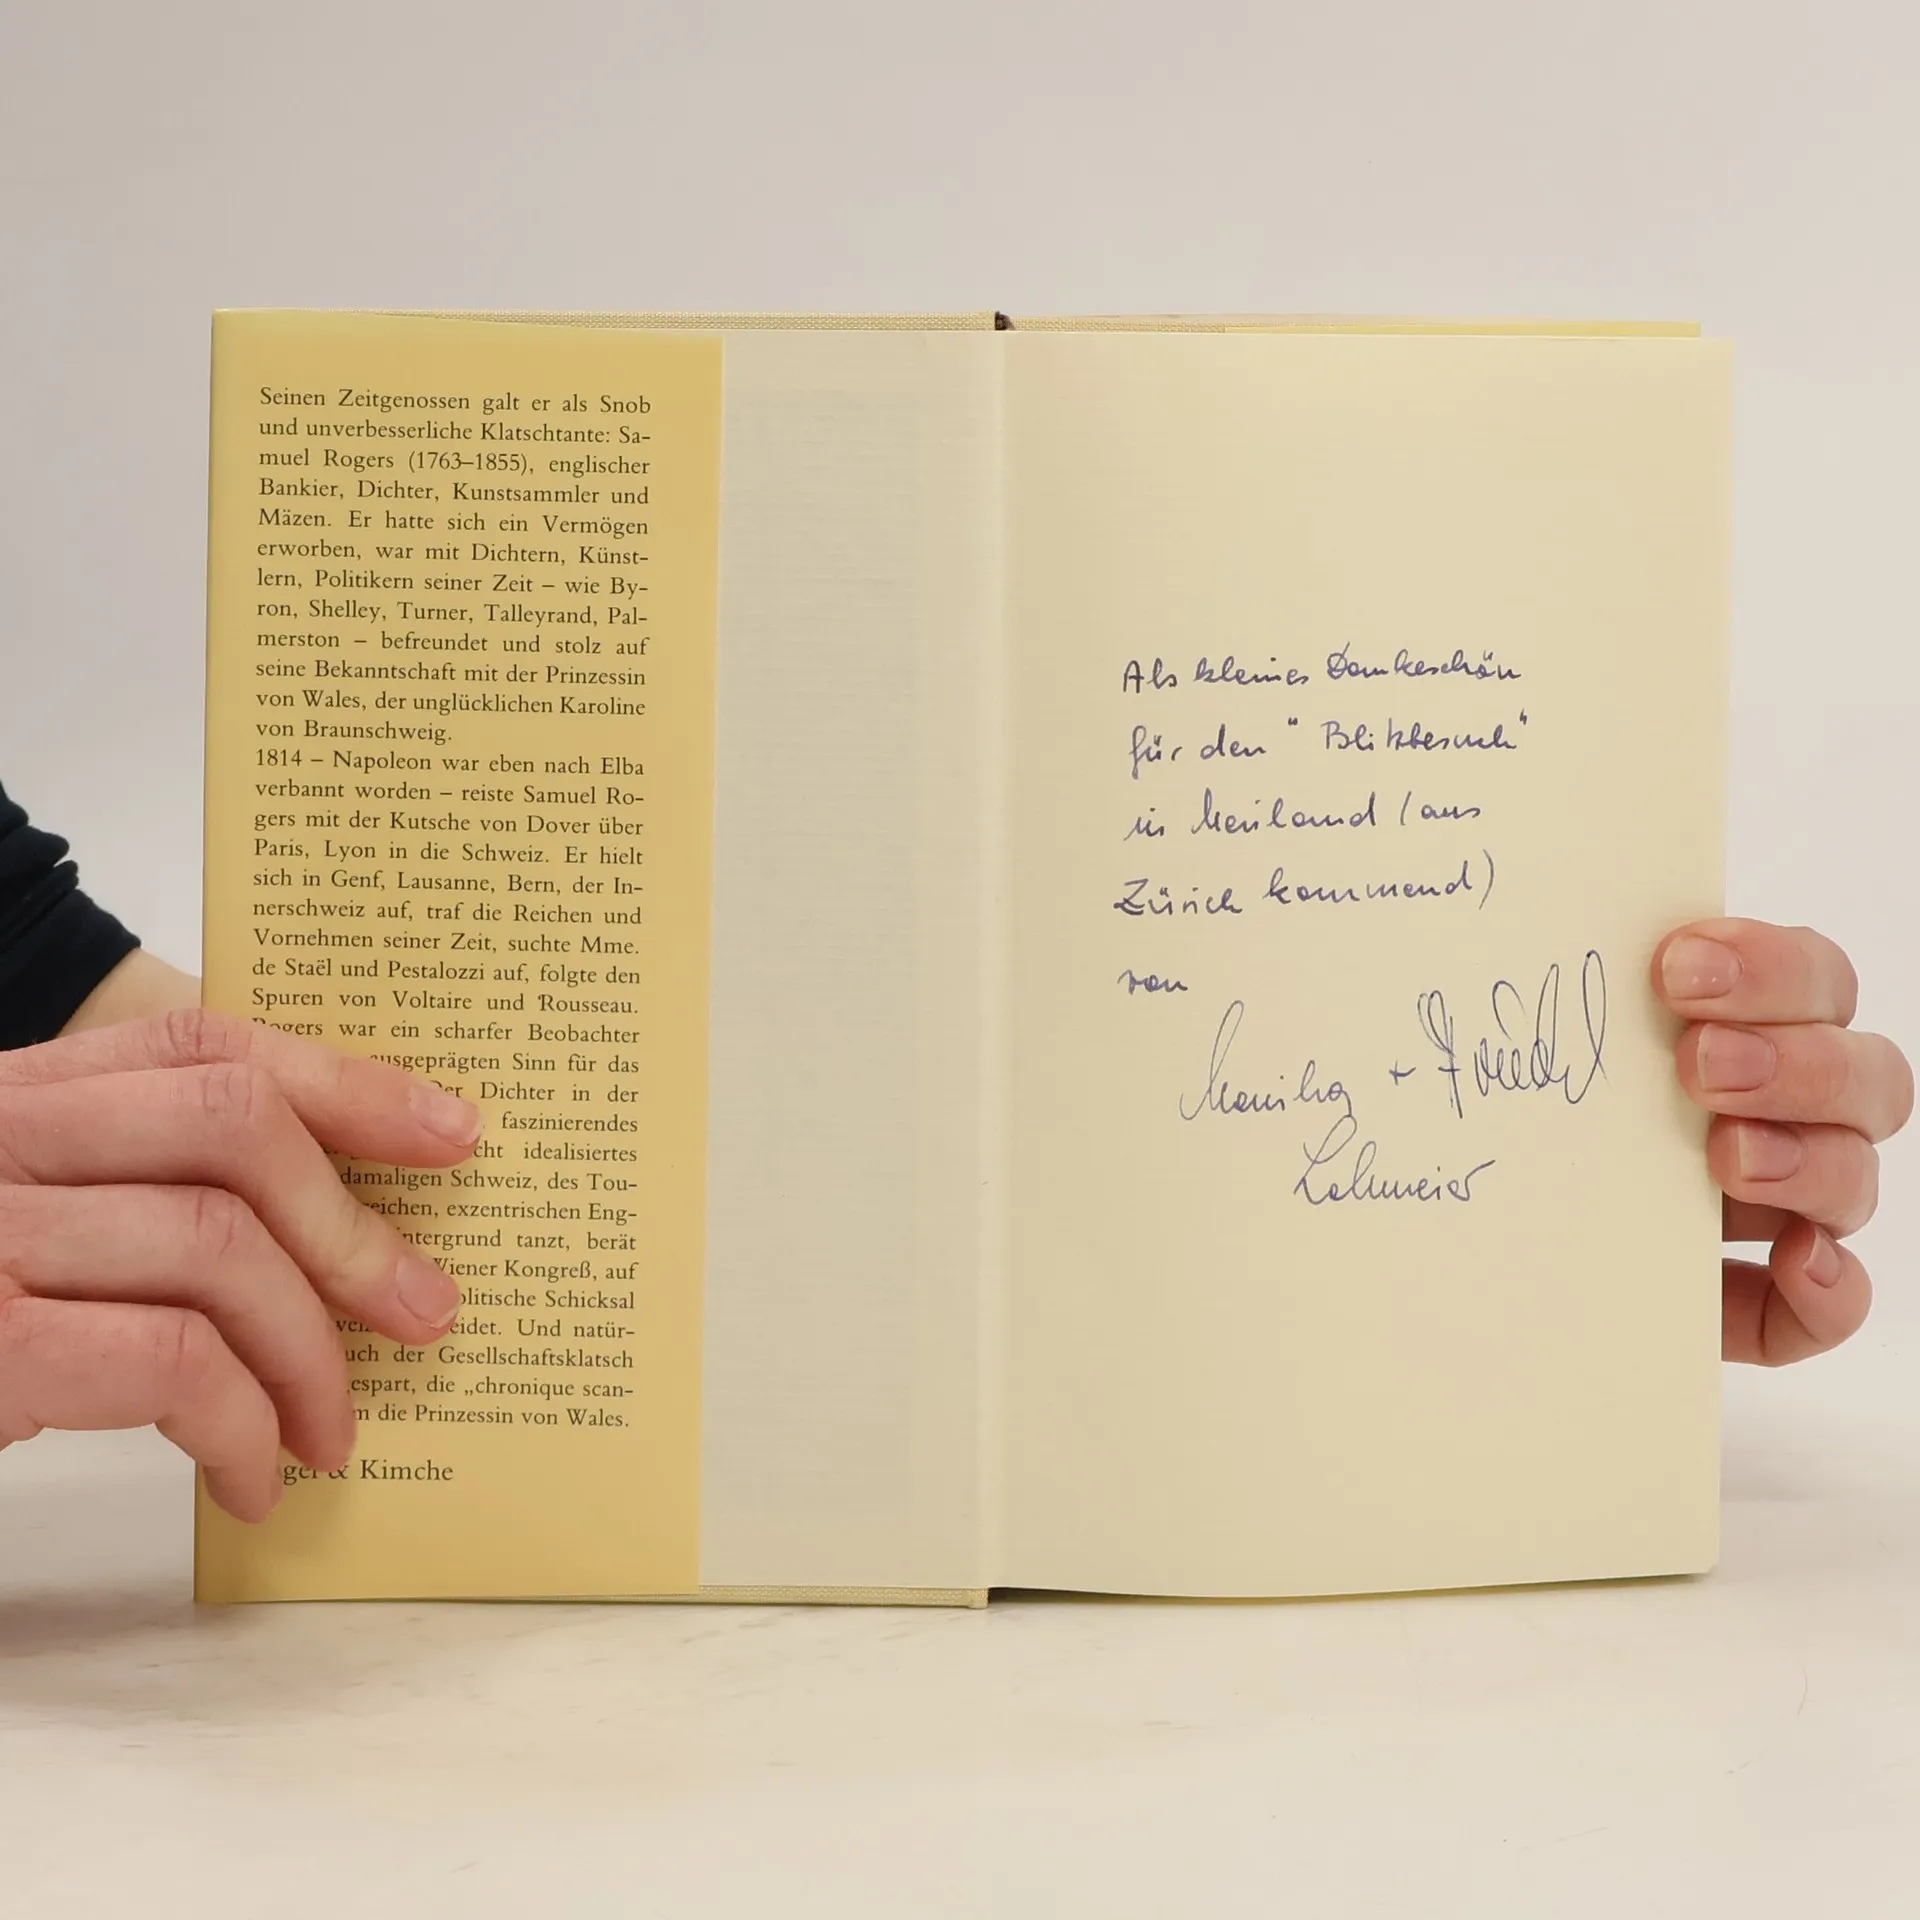 Seinen Zeitgenossen galt er als Snob
und unverbesserliche Klatschtante: Sa-
muel Rogers (1763–1855), englischer
Bankier, Dichter, Kunstsammler und
Mäzen. Er hatte sich ein Vermögen
erworben, war mit Dichtern, Künst-
lern, Politikern seiner Zeit – wie By-
ron, Shelley, Turner, Talleyrand, Pal-
merston – befreundet und stolz auf
seine Bekanntschaft mit der Prinzessin
von Wales, der unglücklichen Karoline
von Braunschweig.
1814 – Napoleon war eben nach Elba
verbannt worden – reiste Samuel Ro-
gers mit der Kutsche von Dover über
Paris, Lyon in die Schweiz. Er hielt
sich in Genf, Lausanne, Bern, der In-
nerschweiz auf, traf die Reichen und
Vornehmen seiner Zeit, suchte Mme.
de Staël und Pestalozzi auf, folgte den
Spuren von Voltaire und Rousseau.
Rogers war ein scharfer Beobachter
ausgeprägten Sinn für das
Der Dichter in der
faszinierendes
idealisiertes
damaligen Schweiz, des Tou-
exzentrischen Eng-
tanzt, berät
Wiener Kongreß, auf
Schicksal
Und natür-
der Gesellschaftsklatsch
die „chronique scan-
die Prinzessin von Wales.
& Kimche
Als kleines Dankeschön
für den "Blitzbesuch"
in Mailand (aus
Zürich kommend)
von
Monika + Friedel
Lohmeier